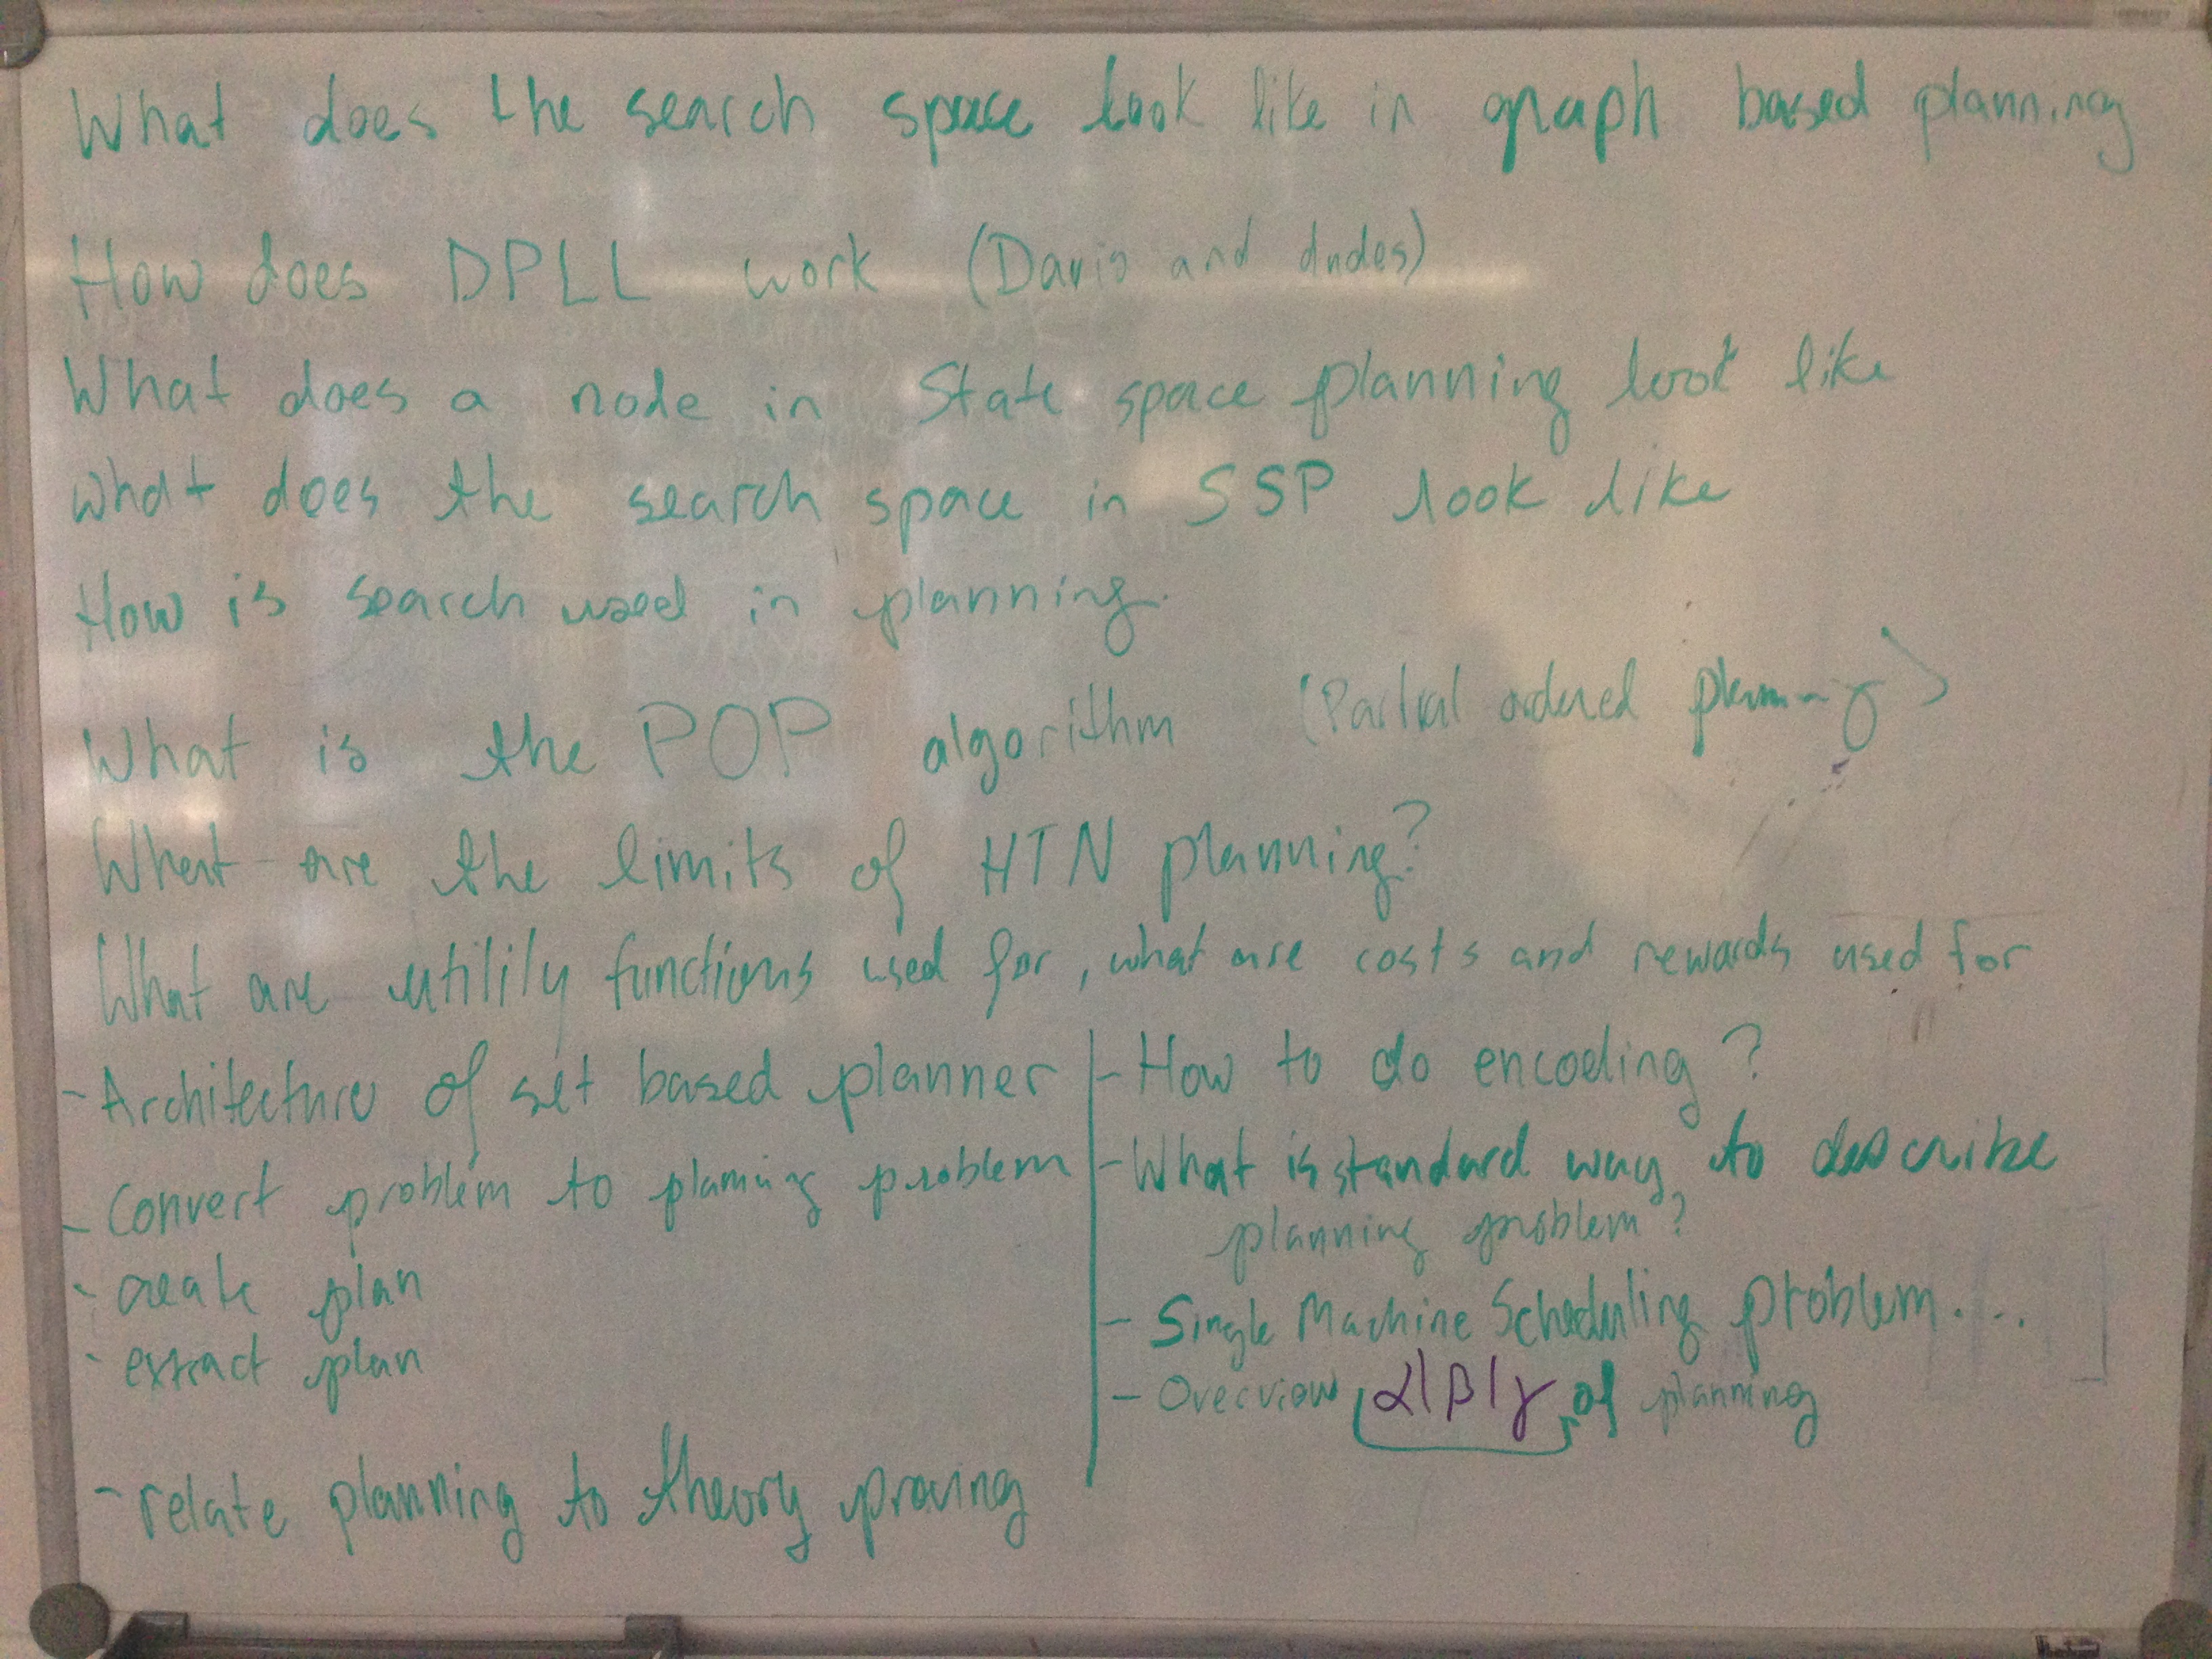 What does the search space look like in graph based planning
How does DPLL work (Davis and dudes)
What does a node in State space planning look like
what does the search space in SSP look like
How is search used in planning.
What is the POP algorithm (Partial ordered planning)
What are the limits of HTN planning?
What are utility functions used for, what are costs and rewards used for
- Architecture of set based planner
- convert problem to planning problem
- create plan
- extract plan
- relate planning to theory proving
- How to do encoding?
- What is standard way to describe
planning problem?
- Single Machine Scheduling problem...
- Overview α|β|γ of planning